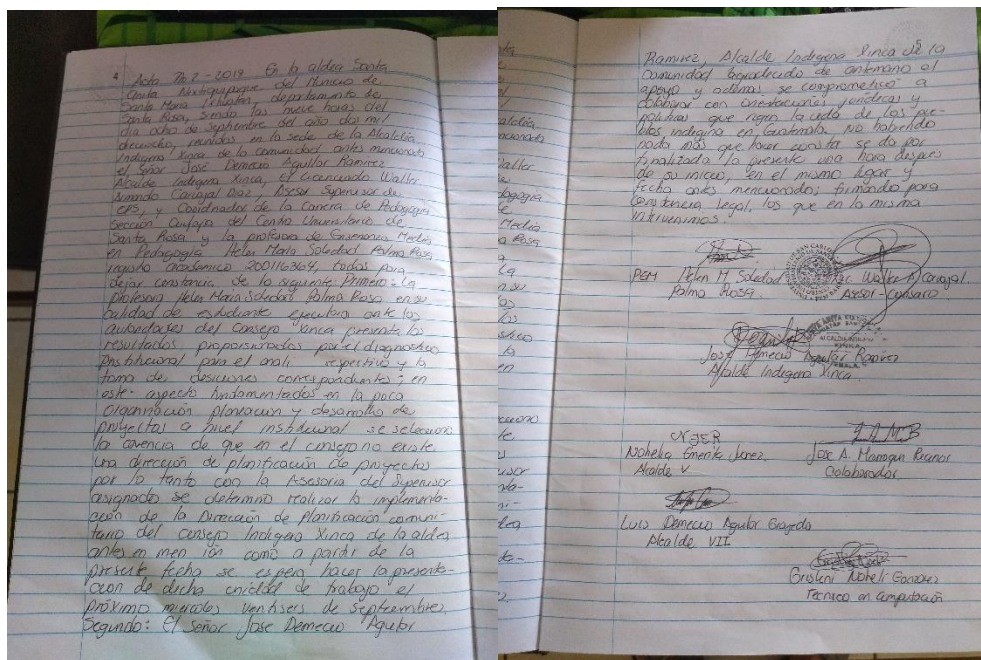 4
Acta No. 2 - 2018 En la aldea Santa
Anita Nextiquipaque del Municio de
Santa María Ixhuatán, departamento de
Santa Rosa, siendo las nueve horas del
dia ocho de septiembre del año dos mil
dieciocho, reunidos en la sede de la Alcaldía
Indígena Xinca de la comunidad antes mencionada
el Señor José Demecio Aguilar Ramírez
Alcalde Indígena Xinca, el Licenciado Walter
Armando Carvajal Díaz, Asesor Supervisor de
EPS, y Coordinador de la Carrera de Pedagogía
Sección Cunzapa del Centro Universitario de
Santa Rosa y la profesora de Enseñanza Media
en Pedagogía Helen María Soledad Palma Rosa
registro académico 200116364, todos para
dejar constancia de lo siguiente Primero: La
profesora Helen María Soledad Palma Rosa en su
calidad de estudiante ejecutora ante las
autoridades del Consejo Xinca presenta los
resultados proporsionados por el diagnostico
Institucional para el anali respectivo y la
toma de desiciones correspondientes; en
este aspecto fundamentados en la poca
organización planeacion y desarrollo de
proyectos a nivel institucional se selecciono
la carencia de que en el consejo no existe
una dirección de planificación de proyectos
por lo tanto con la Asesoria del Supervisor
asignado se determino realizar la implementa-
ción de la Dirección de Planificación comuni-
tario del Consejo Indígena Xinca de la aldea
antes en men ión como a partir de la
presente fecha se espera hacer la presenta-
ción de dicha unidad de trabajo el
próximo miercoles ventiseis de Septiembre.
Segundo: El Señor Jose Demecio Aguilar
Ramirez, Alcalde Indígena Xinca de la
Comunidad agradecido de antemano el
apoyo y además se comprometio a
colaborar con orientaciones jurídicas y
políticas que rigen la vida de los pue-
blos indígena en Guatemala. No habiendo
nada más que hacer consta se da por
finalizada la presente una hora después
de su inicio, en el mismo lugar y
fecha antes mencionados; firmando para
constancia legal. los que en la misma
intervenimos.
PEM Helen M Soledad Lic Walter A Carvajal.
Palma Rossa. Asesor-Cunsaro
José Demecio Aguilar Ramirez
Alcalde Indígena Xinca.
NJER
Nohelia Emerita Juarez.
Alcalde V
Jose A. Marroquin
Colaborador
Luis Demecio Aguilar Grageda
Alcalde VII
Noheli Gonzalez
Tecnico en Computación